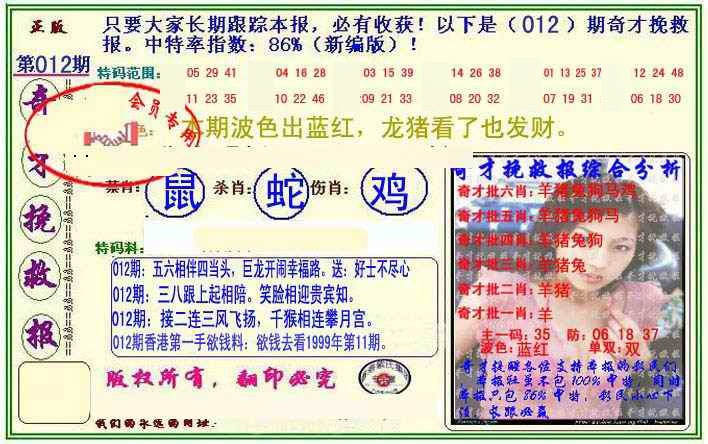 正版
只要大家长期跟踪本报，必有收获！以下是（012）期奇才挽救
报。中特率指数：86%（新编版）！
第012期
特码范围：
05 29 41
04 16 28
03 15 39
14 26 38
01 13 25 37
12 24 48
11 23 35
10 22 46
09 21 33
08 20 32
07 19 31
06 18 30
会员专用
本期波色出蓝红，龙猪看了也发财。
奇
才
挽
救
报
鼠
杀肖：
蛇
伤肖：
鸡
特码料：
012期：五六相伴四当头，巨龙开闹幸福路。送：好士不尽心
012期：三八跟上起相陪。笑脸相迎贵宾知。
012期：接二连三风飞扬，千猴相连攀月宫。
012期香港第一手欲钱料：欲钱去看1999年第11期。
版权所有，翻印必究
我们的永远的网址：
奇才挽救报综合分析
奇才批六肖：羊猪兔狗马鸡
奇才批五肖：羊猪兔狗马
奇才批四肖：羊猪兔狗
奇才批三肖：羊猪兔
奇才批二肖：羊猪
奇才批一肖：羊
主一码：35 防：06 18 37
波色：蓝红 单双：双
奇才提醒各位支持本报的彩民们
，本报社虽不包100%中特，同时
本报只包86%中特，彩民小心下
注，长跟必赢